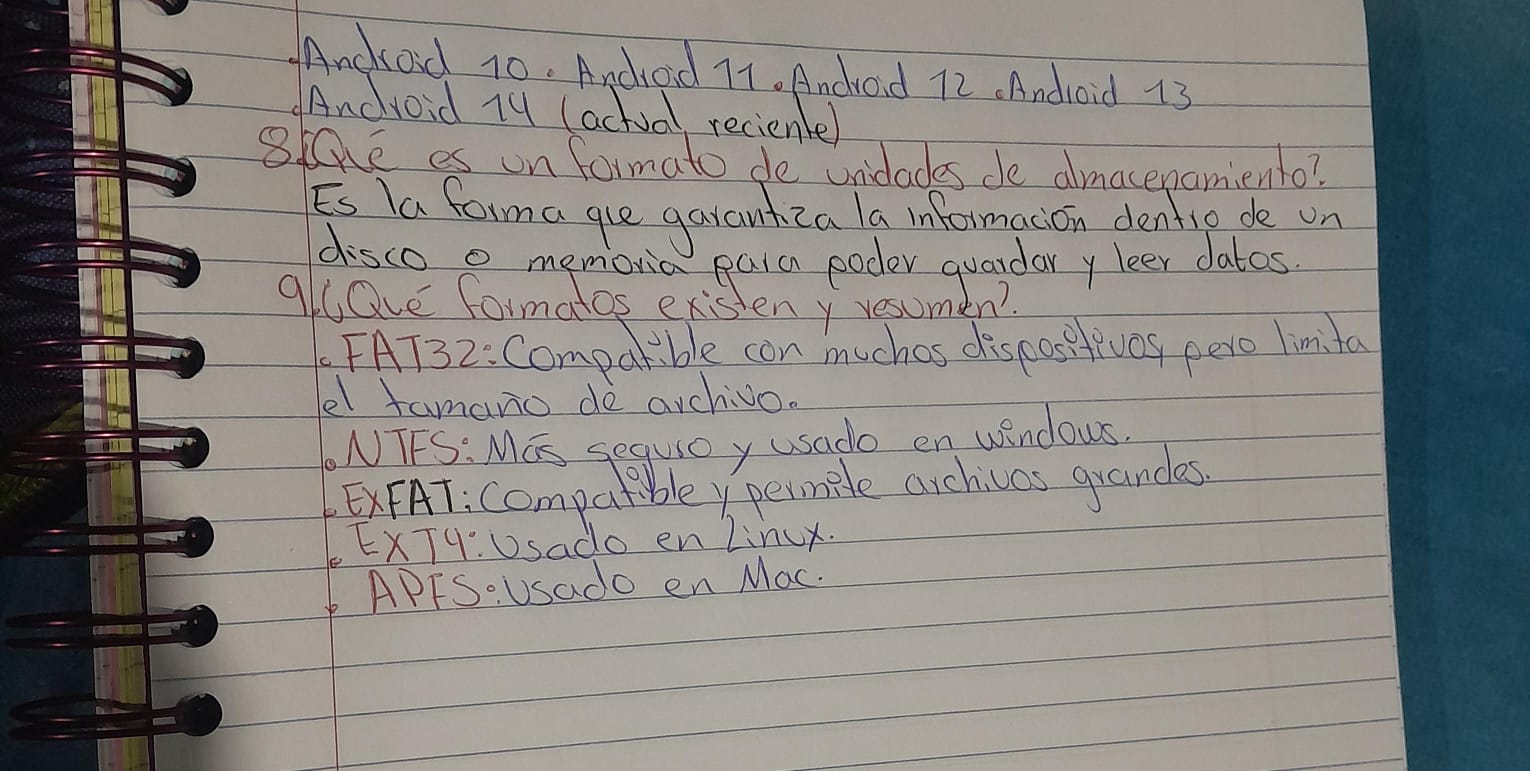 • Android 10 • Android 11 • Android 12 • Android 13
• Android 14 (actual, reciente)
8¿Qué es un formato de unidades de almacenamiento?
Es la forma que garantiza la información dentro de un
disco o memoria para poder guardar y leer datos.
9¿Qué formatos existen y resumen?
• FAT32: Compatible con muchos dispositivos pero limita
el tamaño de archivo.
• NTFS: Más seguro y usado en windows.
• EXFAT: Compatible y permite archivos grandes.
• EXT4: Usado en Linux.
• APFS: Usado en Mac.